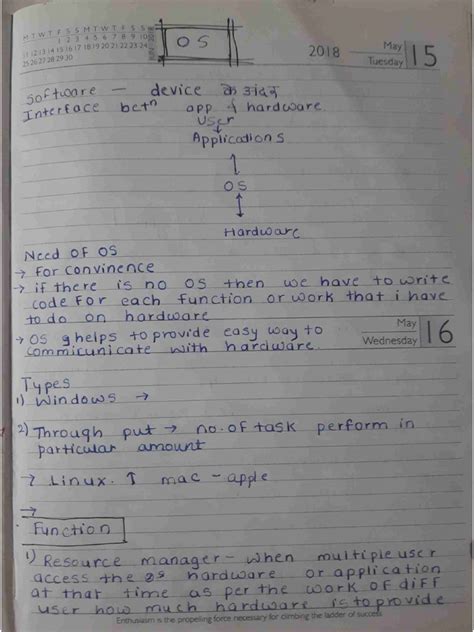 M T W T F S S M T W T F S S
1 2 3 4 5 6 7 8 9 10
11 12 13 14 15 16 17 18 19 20 21 22 23 24
25 26 27 28 29 30
OS
2018 May 15
Tuesday
Software — device के अंदर
Interface betn app & hardware
User
Applications
OS
Hardware
Need OF OS
→ For convinence
→ if there is no OS then we have to write
code for each function or work that i have
to do on hardware
→ OS helps to provide easy way to
commicunicate with hardware.
May 16
Wednesday
Types
1) Windows →
2) Through put → no. of task perform in
particular amount
→ Linux. ↑ mac - apple
→
Function
1) Resource manager - when multiple user
access the hardware or application
at that time as per the work of diff
user how much hardware is to provide
Enthusiasm is the propelling force necessary for climbing the ladder of success